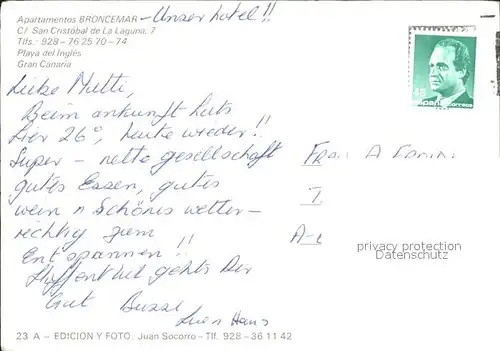 Apartamentos BRONCEMAR - Unser hotel!!
C/ San Cristóbal de La Laguna, 7
Tlfs.: 928 - 76 25 70 - 74
Playa del Inglés
Gran Canaria
Liebe Mutti,
Beim ankunft hats
hier 26°, heute wieder!!
Super - nette gesellschaft
gutes Essen, gutes
wein n Schönes wetter -
richtig zum
Entspannen!!
Hoffentlich gehts Dir
Gut Bussi
Hans
48
España correos
Frau A
privacy protection
(c) ansichtskartenversand.com
23 A - EDICION Y FOTO: Juan Socorro - Tlf. 928 - 36 11 42